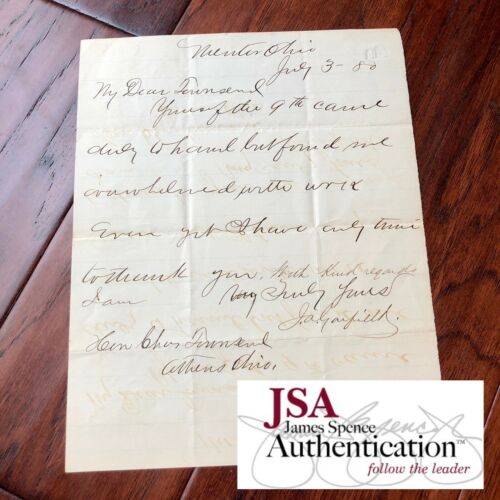 Mentor Ohio
July 3 - 80
My Dear Townsend
Yours of the 9th came
duly to hand but found me
overwhelmed with work
Even yet I have only time
to thank you. With kind regards
I am Very Truly Yours
J.A. Garfield.
Hon Chas Townsend
Athens Ohio.
JSA
James Spence
Authentication™
follow the leader